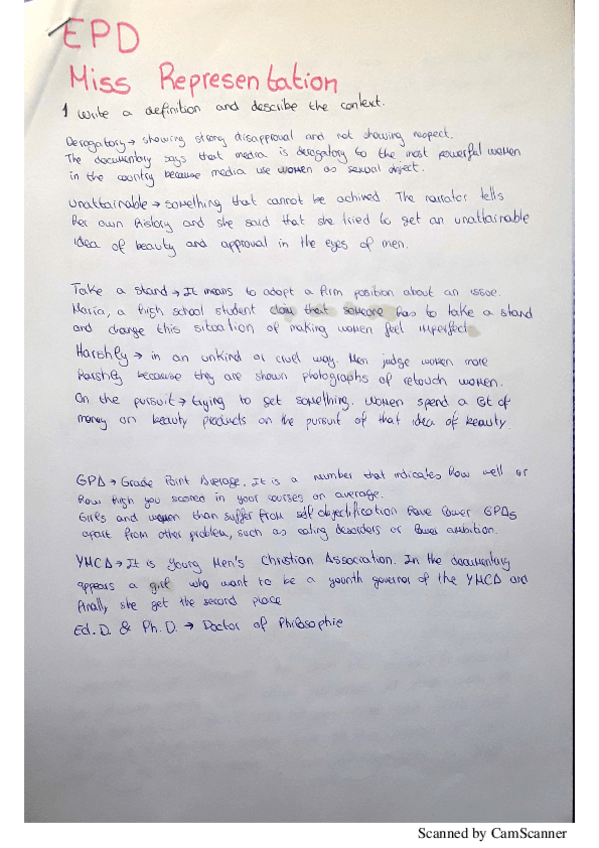 EPD
Miss Representation
1 Write a definition and describe the context.
Derogatory → showing strong disapproval and not showing respect.
The documentary says that media is derogatory to the most powerful women
in the country because media use women as sexual object.
Unattainable → something that cannot be achived. The narrator tells
her own history and she said that she tried to get an unattainable
idea of beauty and approval in the eyes of men.
Take a stand → It means to adopt a firm position about an issue.
Maria, a high school student claim that someone has to take a stand
and change this situation of making women feel imperfect
Harshly → in an unkind or cruel way. Men judge women more
harshly because they are shown photographs of retouch women.
On the pursuit → trying to get something. Women spend a lot of
money on beauty products on the pursuit of that idea of beauty.
GPA → Grade Point Average. It is a number that indicates how well or
how high you scored in your courses on average.
Girls and women than suffer from self objectification have lower GPAs
apart from other problem, such as eating desorders or lower ambition.
YMCA → It is Young Men's Christian Association. In the documentary
appears a girl who want to be a younth governor of the YMCA and
finally she get the second place
Ed. D. & Ph. D. → Doctor of Philosophie
Scanned by CamScanner